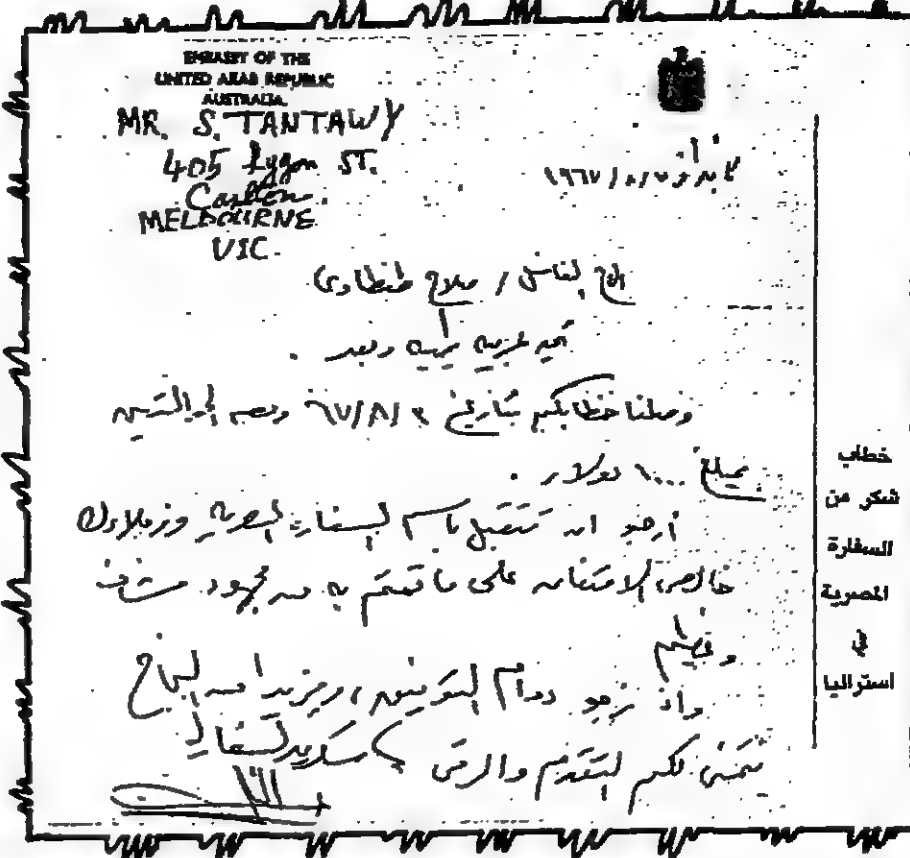 EMBASSY OF THE
UNITED ARAB REPUBLIC
AUSTRALIA.
MR. S. TANTAWY
405 Lygon ST.
Carlton
MELBOURNE
VIC.
١٩٦٧
الأخ الفاضل / صلاح طنطاوى
تحيه عربيه طيبه وبعد .
وصلنا خطابكم بتاريخ ٦٧/٨/٣ وبصحبته
بمبلغ ١٠٠٠ دولار .
أرجو ان تتقبل باسم السفارة المصريه وزملاءك
خالص الامتنان على ما قمتم به من مجهود
وعظيم
واذ نرجو دوام التوفيق ، ومزيدا من النجاح
نتمنى لكم التقدم والرقى
خطاب
شكر من
السفارة
المصرية
في
استراليا